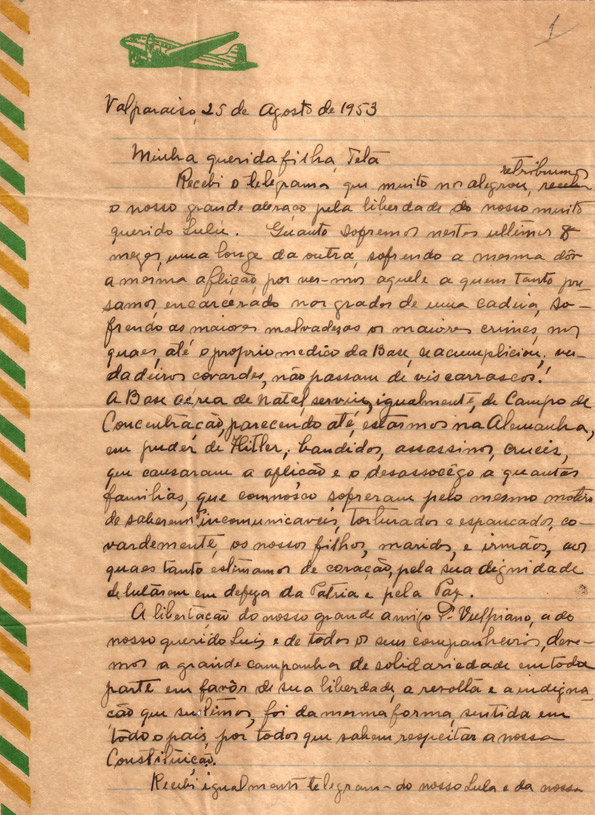 1
Valparaiso, 25 de Agosto de 1953
Minha querida filha, Teta
retribuimos
Recebi o telegrama que muito nos alegrou, receba
o nosso grande abraço pela liberdade do nosso muito
querido Luiz. Quanto sofremos nestes ultimos 8
mezes, uma longe da outra, sofrendo a mesma dôr
a mesma aflição, por ver-mos aquele a quem tanto pre-
samos, encarcerado nas grades de uma cadeia, so-
frendo as maiores malvadesas os maiores crimes, nos
quaes, até o proprio medico da Base, se acumpliciou; ver-
dadeiros covardes, não passam de vis carrascos!
A Base aérea de natal, serviu, igualmente, de Campo de
Concentração, parecendo até, estarmos na Alemanha,
em poder de Hitler, bandidos, assassinos, crueis,
que causaram a aflição e o desassocêgo a quantas
familias, que comnosco sofreram pelo mesmo motivo
de saberem incomunicaveis, torturados e espancados, co-
vardemente, os nossos filhos, maridos, e irmãos, aos
quaes tanto estimamos de coração, pela sua dignidade
e lutaram em defeza da Patria e pela Paz.
A libertação do nosso grande amigo Vulpiano, a do
nosso querido Luis e de todos os seus companheiros, deve-
mos a grande campanha de solidariedade em toda
parte em favôr de sua liberdade, a revolta e a indigna-
ção que sentimos, foi da mesma forma, sentida em
todo o país, por todos que sabem respeitar a nossa
Constituição.
Recebi igualmente telegrama do nosso Lula e da nossa